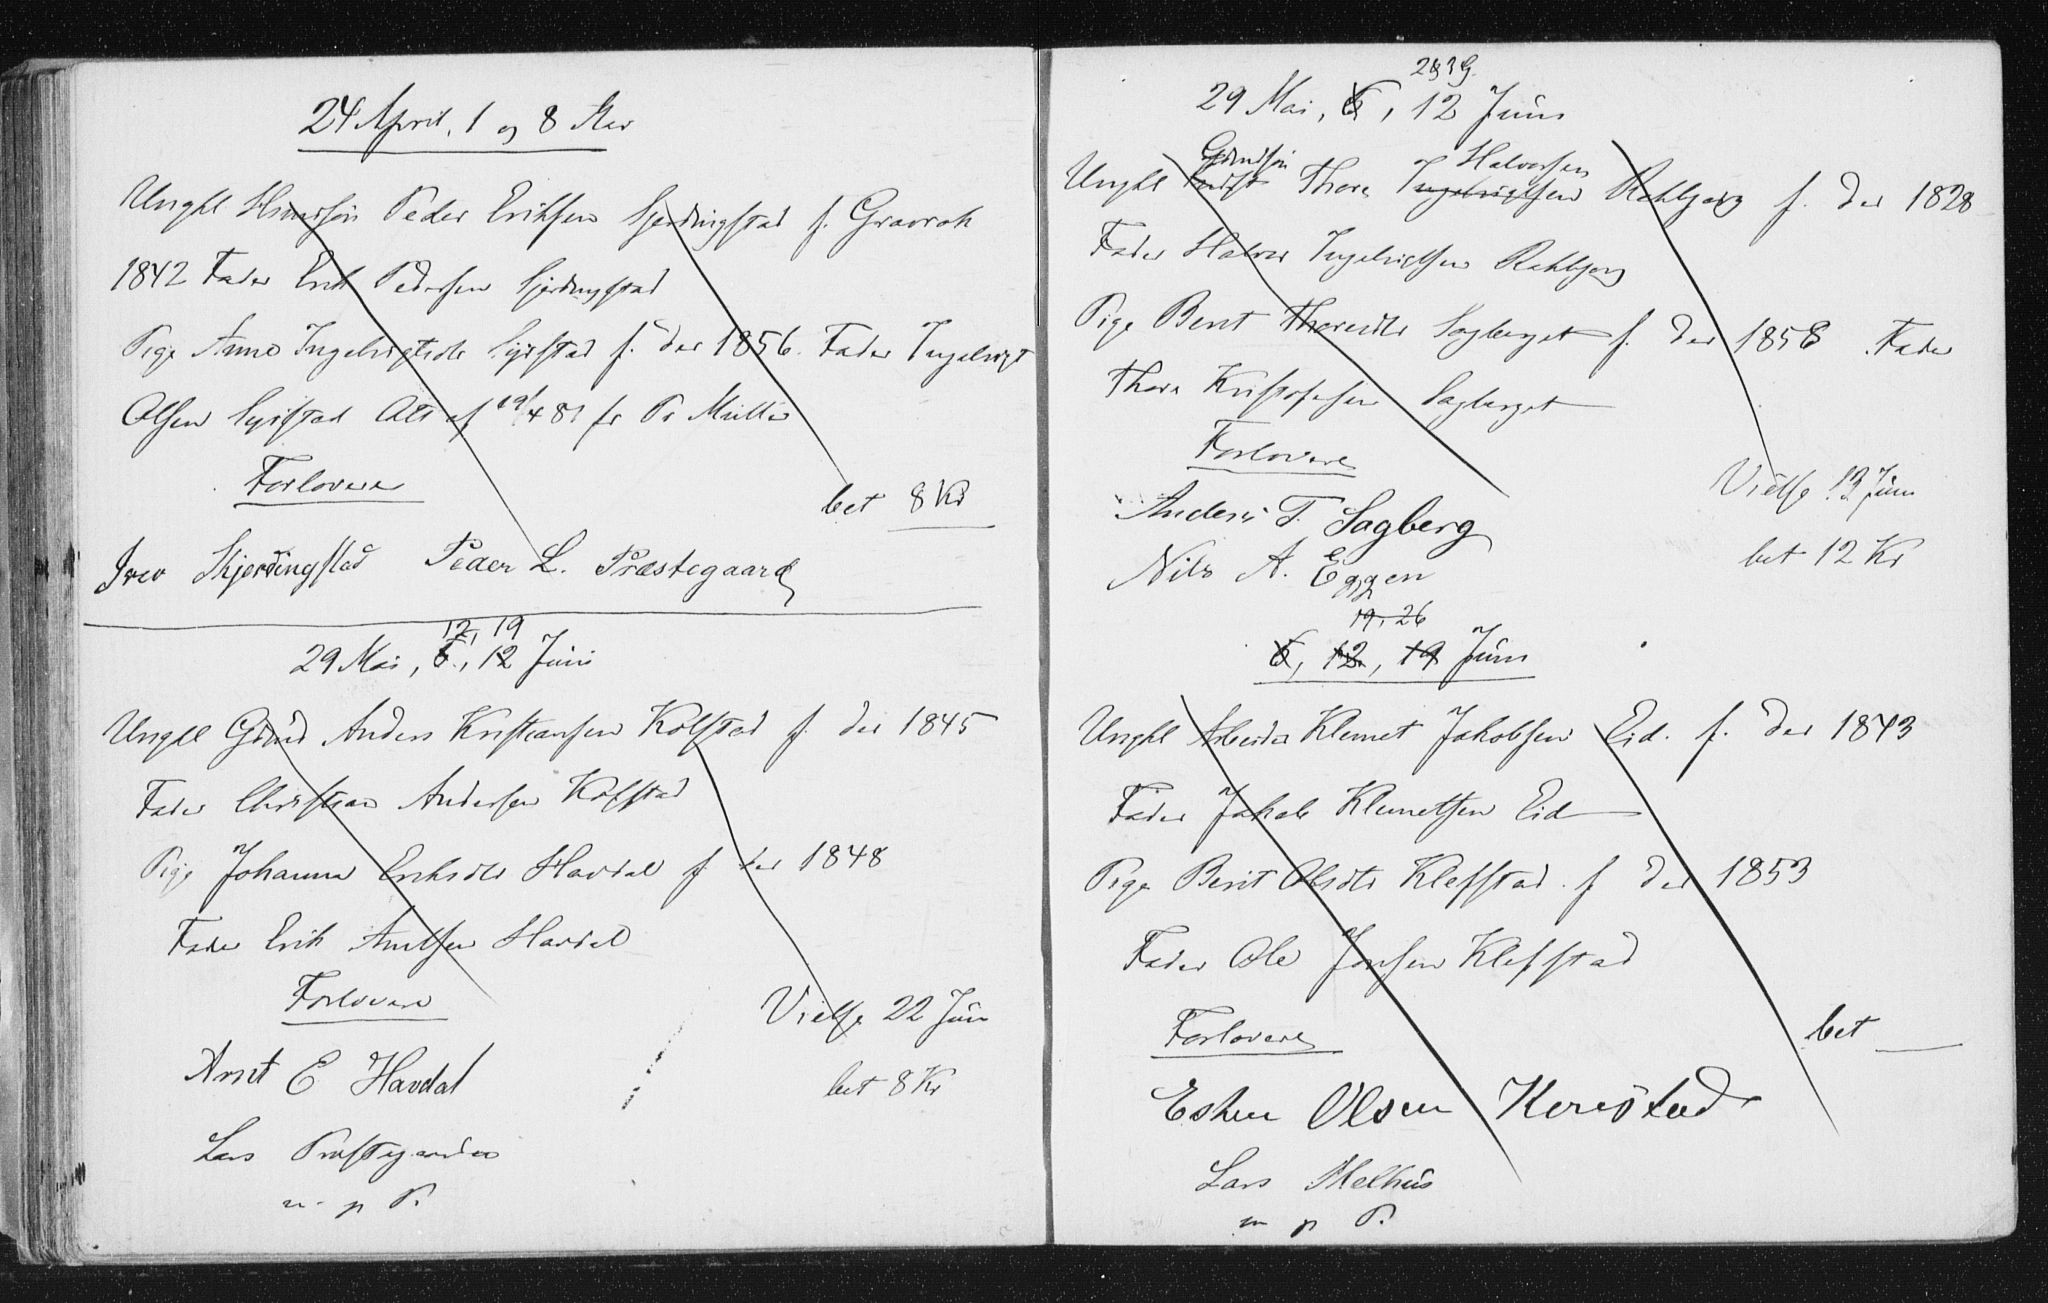 24 April, 1 og 8 Mai
Ungkl Huusfðn Peder Eriksen Gjerdingstad f. Gravrok
1842 Fader Erik Pedersen Gjerdingstad
Pige Anne Ingebrigtsdt Syrstad f. der 1856. Fader Ingebrigt
Olsen Syrstad Att af 19/4 81 fr Pr Müller
Forlovere
bet 8 Kr
Iver Skjerdingstad Peder L. Præstegaard
12, 19
29 Mai, 6, 12 Juni
Ungkl Gdmd Anders Kristiansen Kolstad f. der 1845
Fader Christian Andersen Kolstad
Pige Johanna Eriksdt Havdal f der 1848
Fader Erik Arntsen Havdal
Forlovere
Vielse 22 Juni
Arnt E Havdal
bet 8 Kr
Lars Præstegaarden
m. p P.
2 og 3 G.
29 Mai, 6, 12 Juni
Gdmdsøn Halvorsen
Ungkl Indst Thore Ingebrigtsen Rekbjerg f. der 1828
Fader Halvor Ingebrigtsen Rekbjerg
Pige Berit Thoresdt Sagberget f. der 1858 Fader
Thore Kristofersen Sagberget
Forlovere
Vielse 13 Juni
Anders T. Sagberg
bet 12 Kr
Nils A. Eggen
19, 26
6, 12, 19 Juni
Ungkl Arbeider Klemet Jakobsen Eid. f. der 1843
Fader Jakob Klemetsen Eid
Pige Berit Olsdt Klefstad f der 1853
Fader Ole Jonsen Klefstad
Forlovere
bet —
Esten Olsen Kerestad
Lars Melhus
m p P.